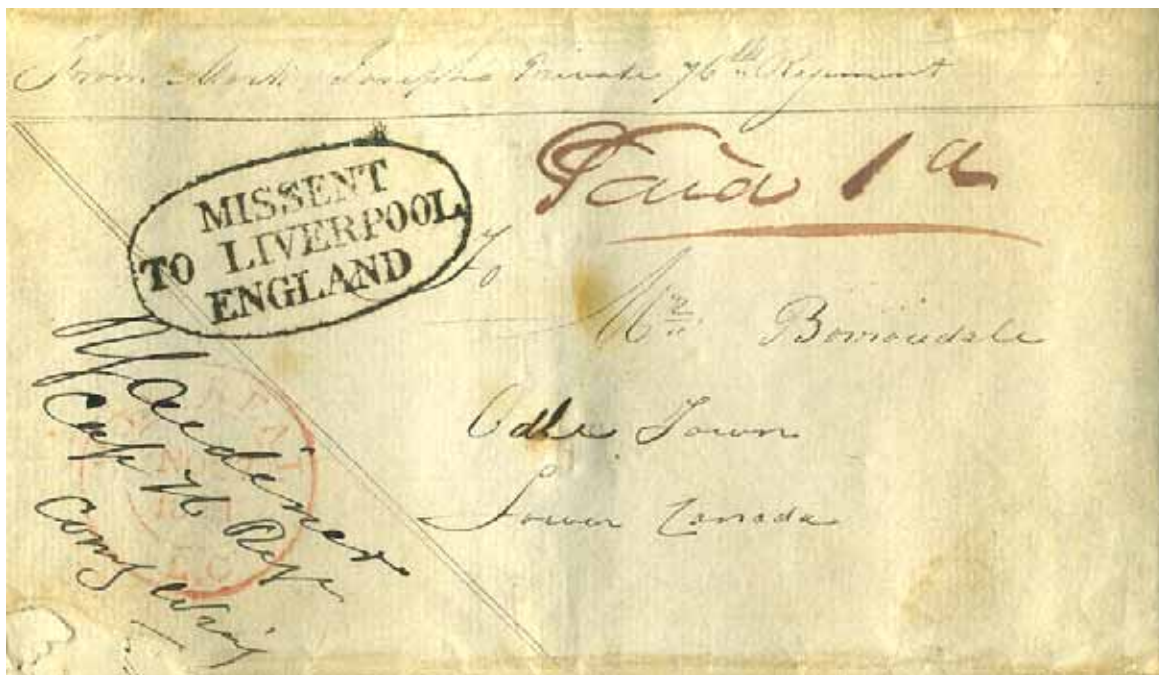 From Mark Josephs Private 76th Regiment
MISSENT
TO LIVERPOOL
ENGLAND
Paid 1d
To
Mrs Borroudale
Odle Town
Lower Canada
Capt 76 Regt
Comg
L.C